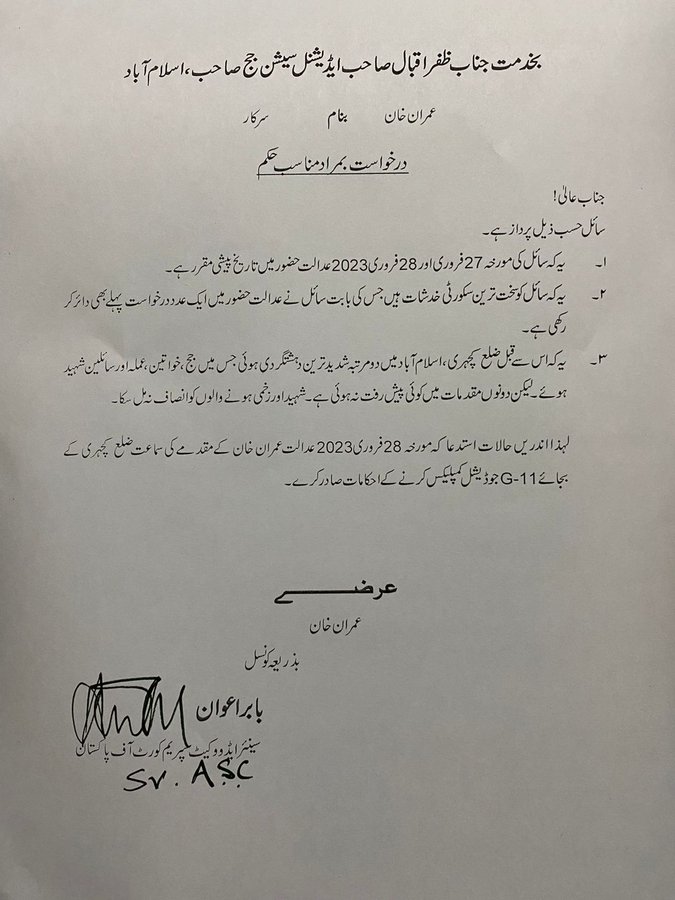 بخدمت جناب ظفر اقبال صاحب ایڈیشنل سیشن جج صاحب، اسلام آباد
عمران خان بنام سرکار
درخواست بمراد مناسب حکم
جناب عالی!
سائل حسب ذیل پرداز ہے۔
۱۔ یہ کہ سائل کی مورخہ 27 فروری اور 28 فروری 2023 عدالت حضور میں تاریخ پیشی مقرر ہے۔
۲۔ یہ کہ سائل کو سخت ترین سکورٹی خدشات ہیں جس کی بابت سائل نے عدالت حضور میں ایک عدد درخواست پہلے بھی دائر کر
رکھی ہے۔
۳۔ یہ کہ اس سے قبل ضلع کچہری، اسلام آباد میں دو مرتبہ شدید ترین دہشتگردی ہوئی جس میں جج، خواتین، عملہ اور سائلین شہید
ہوئے۔ لیکن دونوں مقدمات میں کوئی پیش رفت نہ ہوئی ہے۔ شہید اور زخمی ہونے والوں کو انصاف نہ مل سکا۔
لہذا اندریں حالات استدعا کہ مورخہ 28 فروری 2023 عدالت عمران خان کے مقدمے کی سماعت ضلع کچہری کے
بجائے G-11 جوڈیشل کمپلیکس کرنے کے احکامات صادر کرے۔
عرضے
عمران خان
بذریعہ کونسل
بابر اعوان
سینئر ایڈووکیٹ سپریم کورٹ آف پاکستان
Sr. ASC